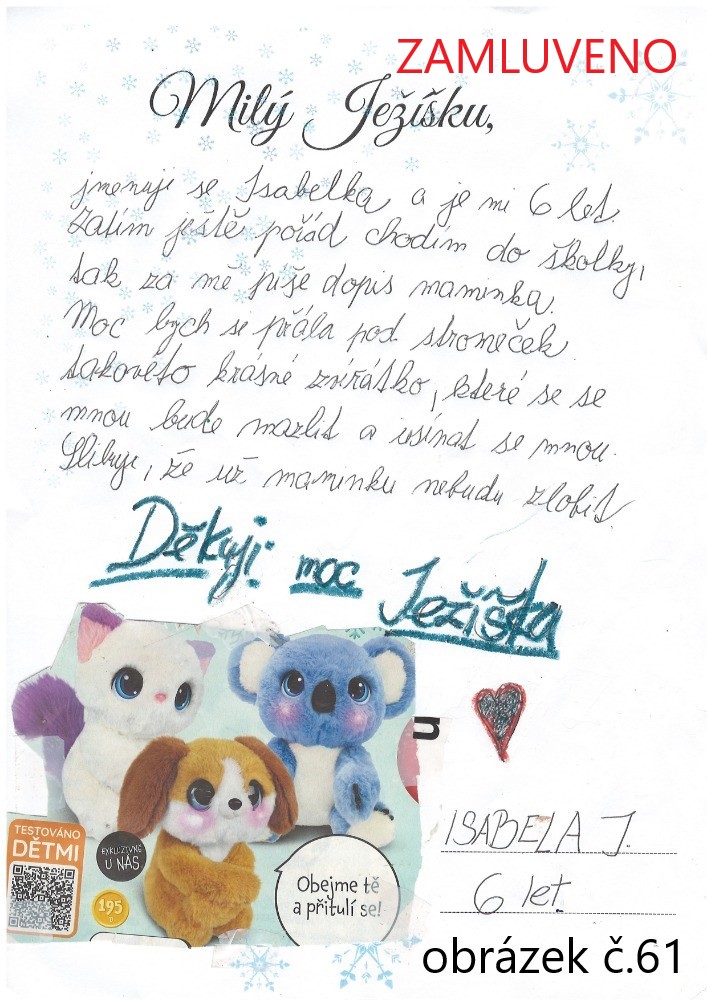 ZAMLUVENO
Milý Ježíšku,
jmenuji se Isabelka a je mi 6 let.
Zatím ještě pořád chodím do školky,
tak za mě píše dopis maminka.
Moc bych se přála pod stromeček
takovéto krásné zvířátko, které se se
mnou bude mazlit a usínat se mnou.
Slibuji, že už maminku nebudu zlobit.
Děkuji moc Ježíška
n
TESTOVÁNO
DĚTMI
EXKLUZIVNĚ
U NÁS
195
Obejme tě
a přitulí se!
ISABELA J.
6 let
obrázek č.61